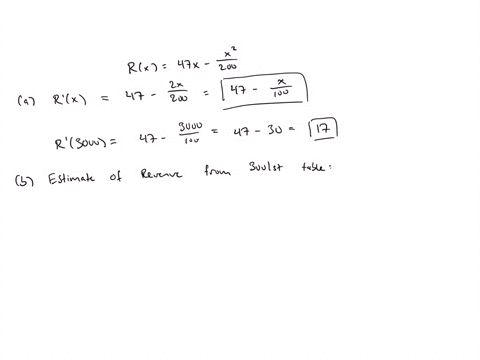 R(x) = 47x - x²/200
(a) R'(x) = 47 - 2x/200 = 47 - x/100
R'(3000) = 47 - 3000/100 = 47 - 30 = 17
(b) Estimate of Revenue from 3001st table: